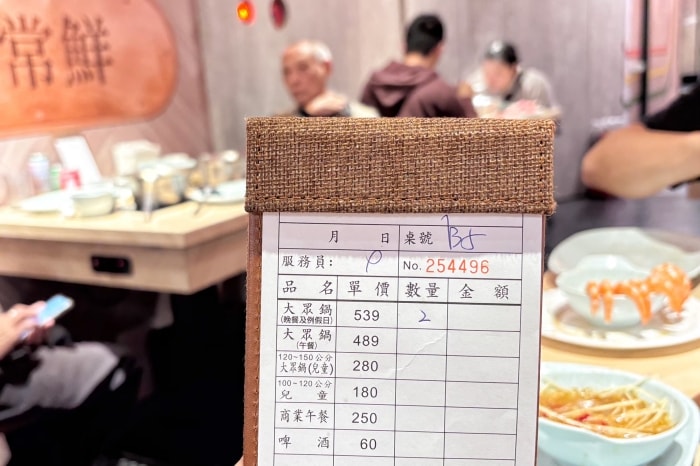 常鮮
月 日 桌號 B5
服務員: P No. 254496
品名 單價 數量 金額
大眾鍋 (晚餐及例假日) 539 2
大眾鍋 (午餐) 489
120~150公分 大眾鍋(兒童) 280
100~120公分 兒童 180
商業午餐 250
啤酒 60